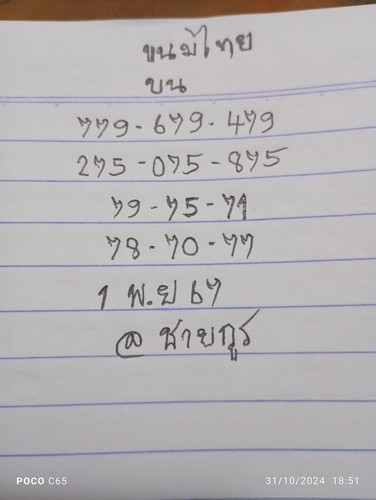 ขนมไทย
บน
779-679-479
275-075-875
79-75-71
78-70-77
1 พ.ย 67
@ ชายกูร
POCO C65
31/10/2024 18:51